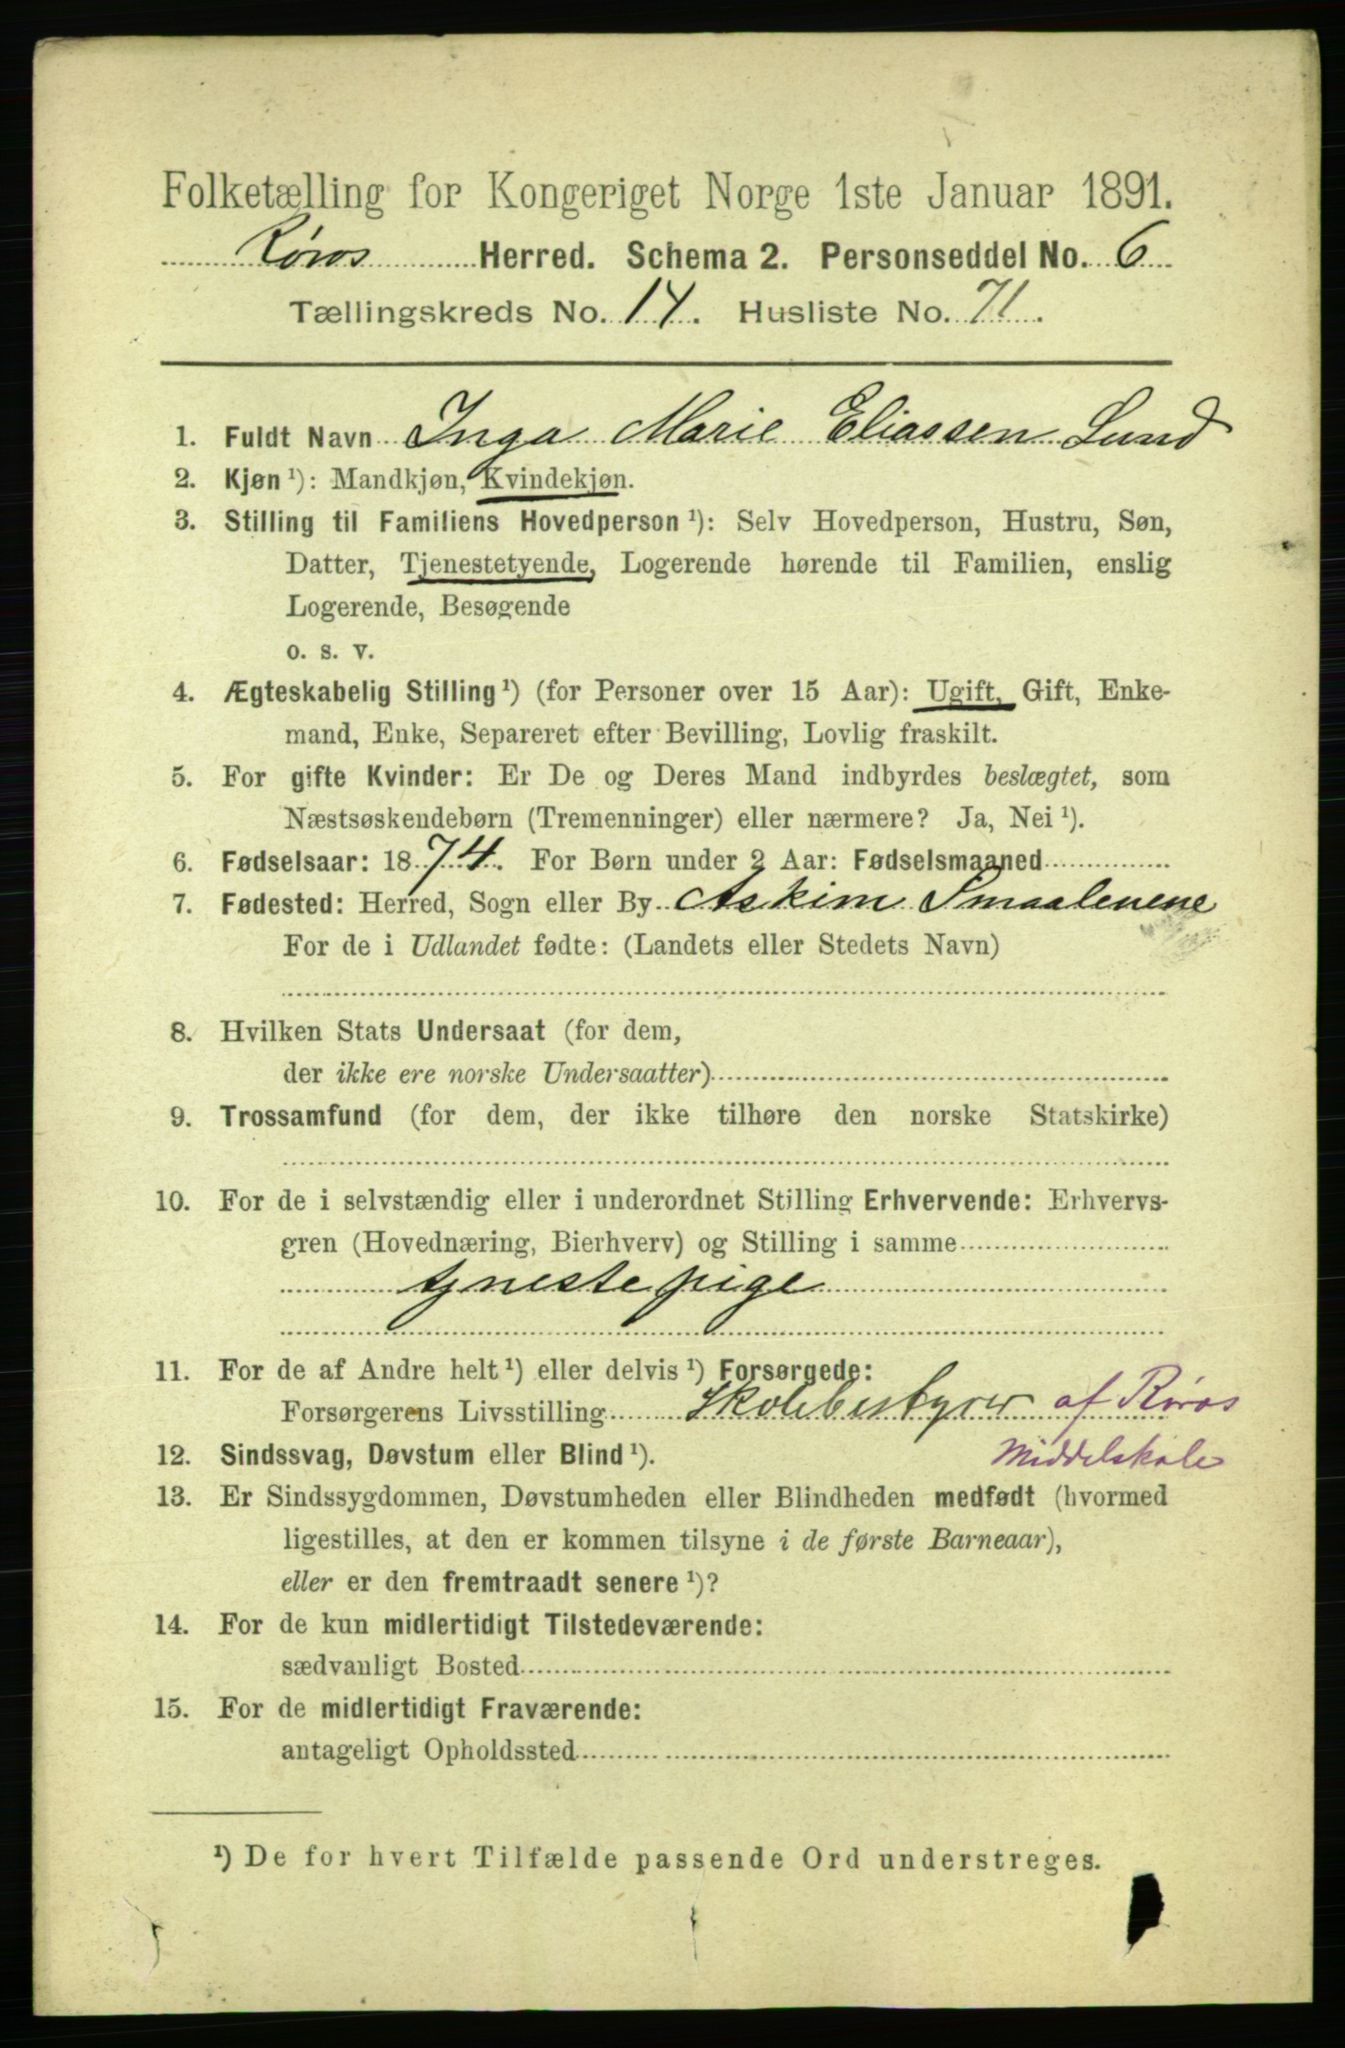 Folketælling for Kongeriget Norge 1ste Januar 1891.
Røros Herred. Schema 2. Personseddel No. 6
Tællingskreds No. 14. Husliste No. 71.
1. Fuldt Navn Inga Marie Eliassen Lund
2. Kjøn ¹): Mandkjøn, Kvindekjøn.
3. Stilling til Familiens Hovedperson ¹): Selv Hovedperson, Hustru, Søn,
Datter, Tjenestetyende, Logerende hørende til Familien, enslig
Logerende, Besøgende
o. s. v.
4. Ægteskabelig Stilling ¹) (for Personer over 15 Aar): Ugift, Gift, Enke-
mand, Enke, Separeret efter Bevilling, Lovlig fraskilt.
5. For gifte Kvinder: Er De og Deres Mand indbyrdes beslægtet, som
Næstsøskendebørn (Tremenninger) eller nærmere? Ja, Nei ¹).
6. Fødselsaar: 1874. For Børn under 2 Aar: Fødselsmaaned
7. Fødested: Herred, Sogn eller By Askim Smaalenene
For de i Udlandet fødte: (Landets eller Stedets Navn)
8. Hvilken Stats Undersaat (for dem,
der ikke ere norske Undersaatter)
9. Trossamfund (for dem, der ikke tilhøre den norske Statskirke)
10. For de i selvstændig eller i underordnet Stilling Erhvervende: Erhvervs-
gren (Hovednæring, Bierhverv) og Stilling i samme
tjnestepige
11. For de af Andre helt ¹) eller delvis ¹) Forsørgede:
Forsørgerens Livsstilling Skolebestyrer af Røros
12. Sindssvag, Døvstum eller Blind ¹). Middelskole
13. Er Sindssygdommen, Døvstumheden eller Blindheden medfødt (hvormed
ligestilles, at den er kommen tilsyne i de første Barneaar),
eller er den fremtraadt senere ¹)?
14. For de kun midlertidigt Tilstedeværende:
sædvanligt Bosted
15. For de midlertidigt Fraværende:
antageligt Opholdssted
¹) De for hvert Tilfælde passende Ord understreges.